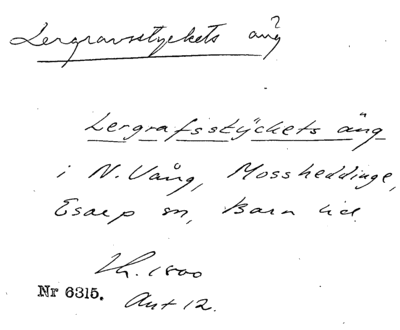 Lergravsstyckets äng
Lergrafsstÿckets äng
i N. Vång, Mossheddinge,
Esarp sn, Bara hd.
Lh. 1800
Nr 6315. Akt 12.